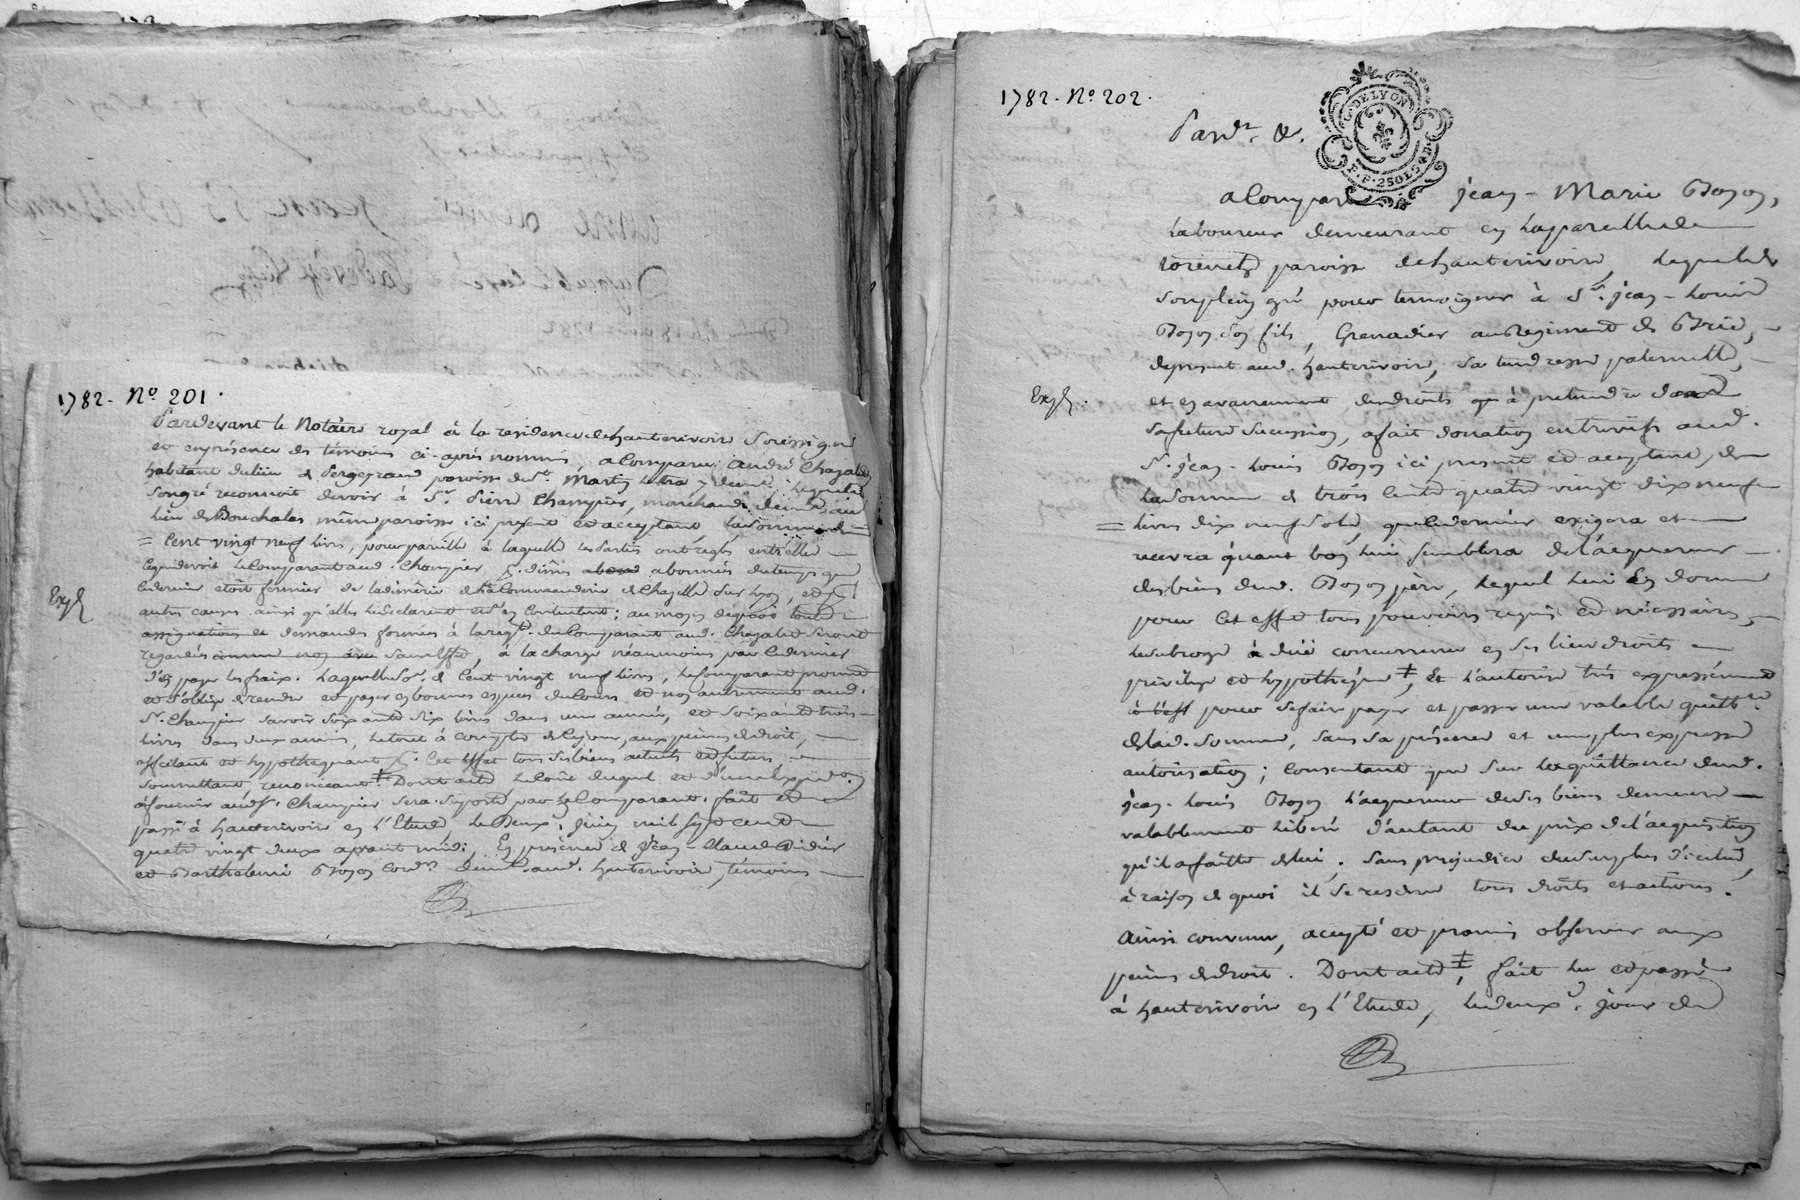 1782. N.º 201.
Pardevant le Notaire royal à la residence de hauterivoire soussigné
et en présence des témoins ci-après nommés, a Comparu André Chazalet
habitant du lieu de paroisse de St. Martin Lestra, lequel de
son gré reconnoit devoir à Sr. Pierre Champier, marchand demt. au
lieu de Bouchalas même paroisse ici présent et acceptant, la somme de
= Cent vingt neuf livres, pour pareille à laquelle les parties ont reglé entr'elle
ce que devoit le Comparant aud. Champier pr. dimes abonnés du tems que
ce dernier étoit fermier de la dimerie de la Commanderie de Chazelle sur Lyon, et pr.
Expé
autres causes ainsi qu'elles le déclarent et s'en contentent; au moyen de quoi toutes
assignations et demandes formées à la reqte. du Comparant aud. Chazalet seront
regardés comme non avenu sans effet, à la charge néanmoins par ce dernier
d'en payer les fraix. Laquelle se. de Cent vingt neuf livres, le Comparant promet
et s'oblige de rendre et payer en bonnes especes du Cours et non autrement aud.
Sr. Champier savoir soixante six livres dans une année, et soixante trois
livres dans deux années, le tout à compter de ce jour, aux peines de droit,
affectant et hypothequant pr. Cet effet tous ses biens actuels et futurs,
soumettant, renonceant. Dont acte, le coût duquel et d'une expedon.
à fournir audSr. Champier sera suporté par le Comparant. fait et
passé à hauterivoire en l'Etude, le Deux. Juin mil sept cent
quatre vingt deux avant midi, En présence de Jean-Claude Didier
et Barthelemi Bojon cordr. demt. aud. hauterivoire, témoins
1782. N.º 202.
Pardt. &.
G. DE LYON
P.P. 2 SOLS
a Comparu Jean-Marie Bojon,
laboureur demeurant en
paroisse de hauterivoire, lequel de
son plein gré pour temoigner à Sr. Jean-Louis
Bojon son fils, Grenadier au Regiment de Brie,
de present aud. hauterivoire, sa tendresse paternelle,
Expé.
et en avancement des droits qu'à pretendre dans
sa future sucession, a fait donation entrevifs aud.
Sr. Jean-Louis Bojon ici present et acceptant, de
la somme de trois Cents quatre vingt dix neuf
= livres dix neuf sols, que ce dernier exigera et
recevra quant bon lui semblera de l'acquereur
des biens dud. Bojon père, lequel lui en donne
pour Cet effet tous pouvoirs requis et nécessaires,
le subroge à düe concurrence en ses lieu droits
privilége et hypothéque, Et l'autorise très expressément
pour se faire payer et passer une valable quittce.
de lad. somme, sans sa présence et une plus expresse
autorisation; Consentant que sur la quittance dud.
Jean-Louis Bojon l'acquereur de ses biens demeure
valablement liberé d'autant du prix de l'acquisition
qu'il a faitte de lui, sans prejudice du surplus d'icelui,
à raison de quoi il se reserve tous droits et actions.
Ainsi convenu, accepté et promis observer aux
peines de droit. Dont acte, fait lu et passé
à hauterivoire en l'Etude, le deuxe. jour de